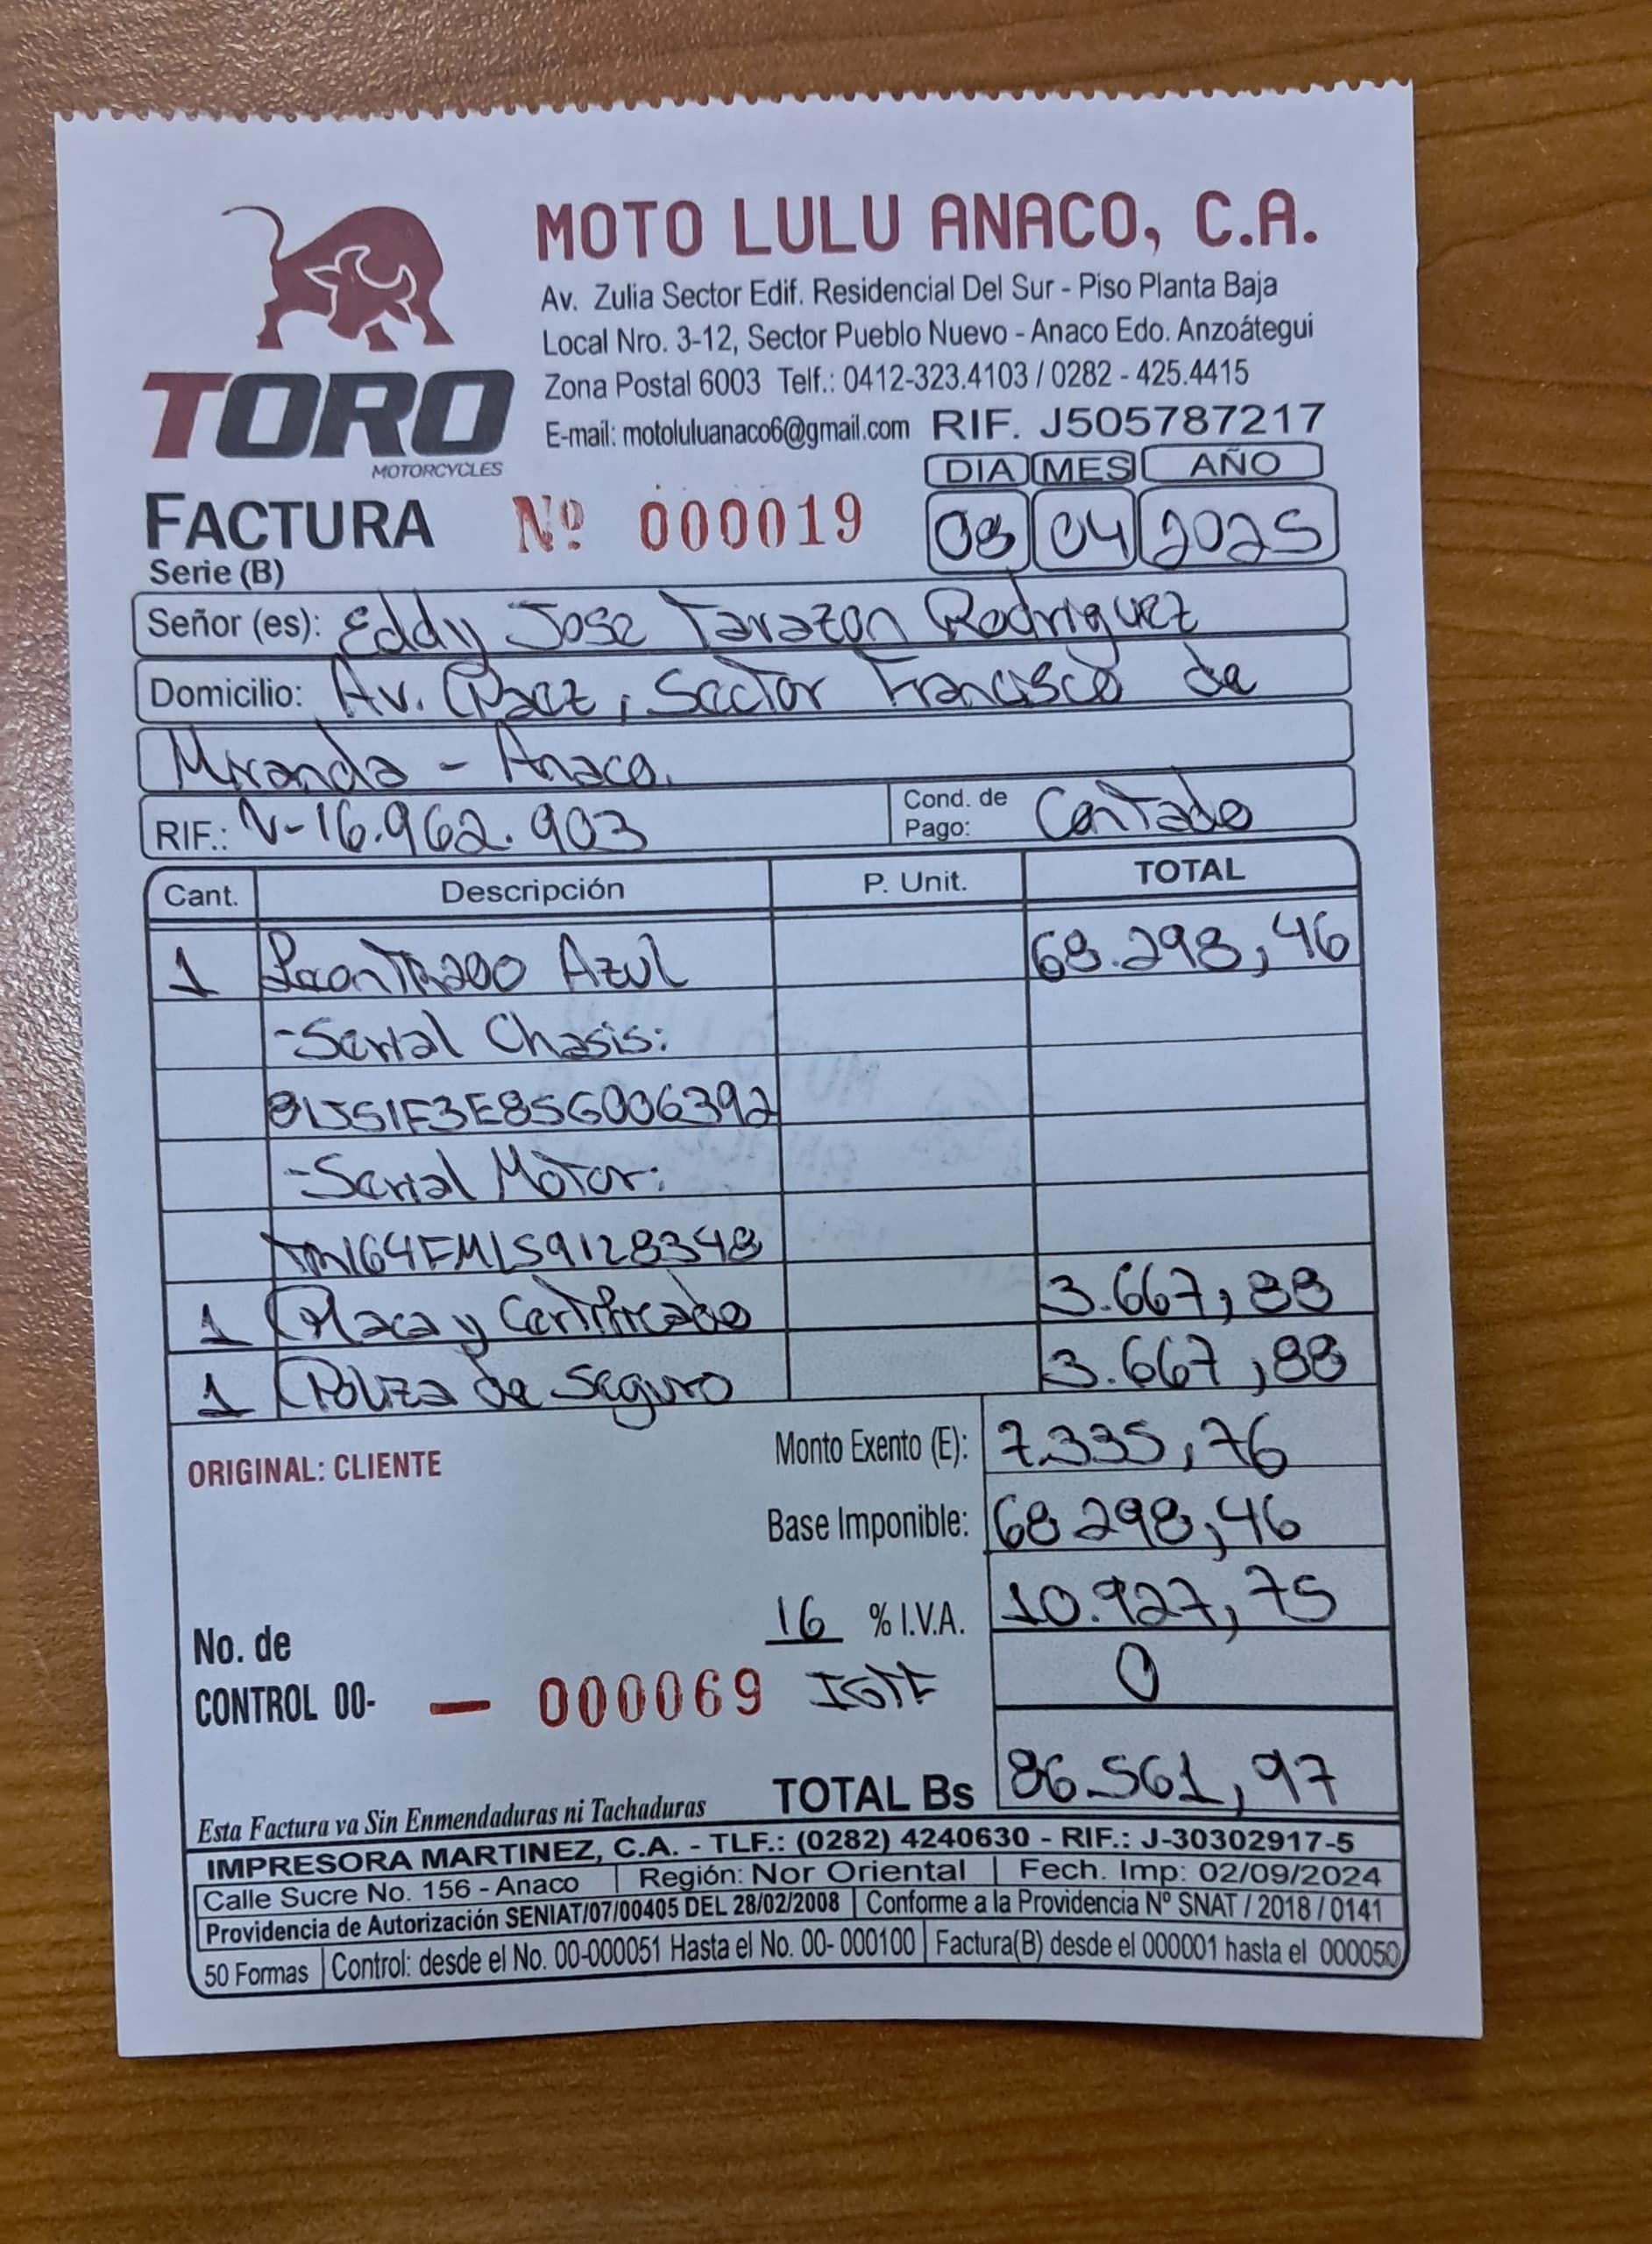 MOTO LULU ANACO, C.A.
Av. Zulia Sector Edif. Residencial Del Sur - Piso Planta Baja
Local Nro. 3-12, Sector Pueblo Nuevo - Anaco Edo. Anzoátegui
Zona Postal 6003 Telf.: 0412-323.4103 / 0282 - 425.4415
E-mail: motoluluanaco6@gmail.com RIF. J505787217
TORO
MOTORCYCLES
DIA MES AÑO
FACTURA Nº 000019 08 04 2025
Serie (B)
Señor (es): Eddy Jose Tarazon Rodriguez
Domicilio: Av. Paez, Sector Francisco de
Miranda - Anaco.
RIF.: V-16.962.903 Cond. de Pago: Contado
Cant. Descripción P. Unit. TOTAL
1 Azul 68.298,46
-Serial Chasis:
-Serial Motor:
1 Placa y Certificado 3.667,88
1 Poliza de Seguro 3.667,88
ORIGINAL: CLIENTE Monto Exento (E): 7.335,76
Base Imponible: 68.298,46
16 % I.V.A. 10.927,75
No. de
CONTROL 00- — 000069 IGTF 0
TOTAL Bs 86.561,97
Esta Factura va Sin Enmendaduras ni Tachaduras
IMPRESORA MARTINEZ, C.A. - TLF.: (0282) 4240630 - RIF.: J-30302917-5
Calle Sucre No. 156 - Anaco Región: Nor Oriental Fech. Imp: 02/09/2024
Providencia de Autorización SENIAT/07/00405 DEL 28/02/2008 Conforme a la Providencia Nº SNAT / 2018 / 0141
50 Formas Control: desde el No. 00-000051 Hasta el No. 00- 000100 Factura(B) desde el 000001 hasta el 000050